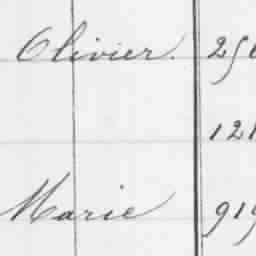 Olivier. 250
121
Marie 919